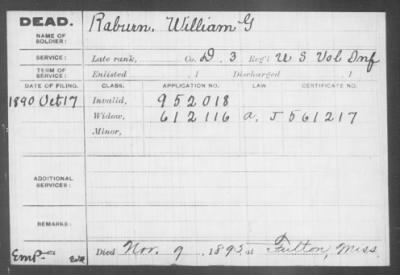 DEAD.
NAME OF SOLDIER: Raburn, William G
SERVICE: Late rank, Co. D, 3 Reg't U S Vol Inf
TERM OF SERVICE: Enlisted , 1 Discharged , 1
DATE OF FILING. CLASS. APPLICATION NO. LAW CERTIFICATE NO.
1890 Oct 17 Invalid, 952018
Widow, 612116 a. J 561217
Minor,
ADDITIONAL SERVICES:
REMARKS:
Died Nov. 9, 1895 at Fulton, Miss.